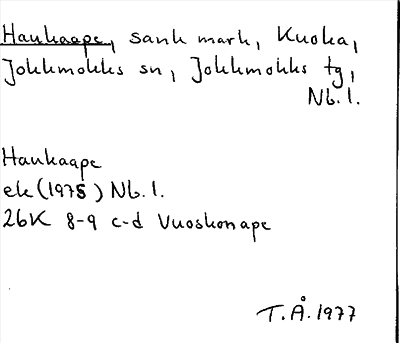 Haukaape, sank mark, Kuoka,
Jokkmokks sn, Jokkmokks tg,
Nb. l.
Haukaape
ek (1975) Nb. l.
26K 8-9 c-d Vuoskonape
T.Å. 1977